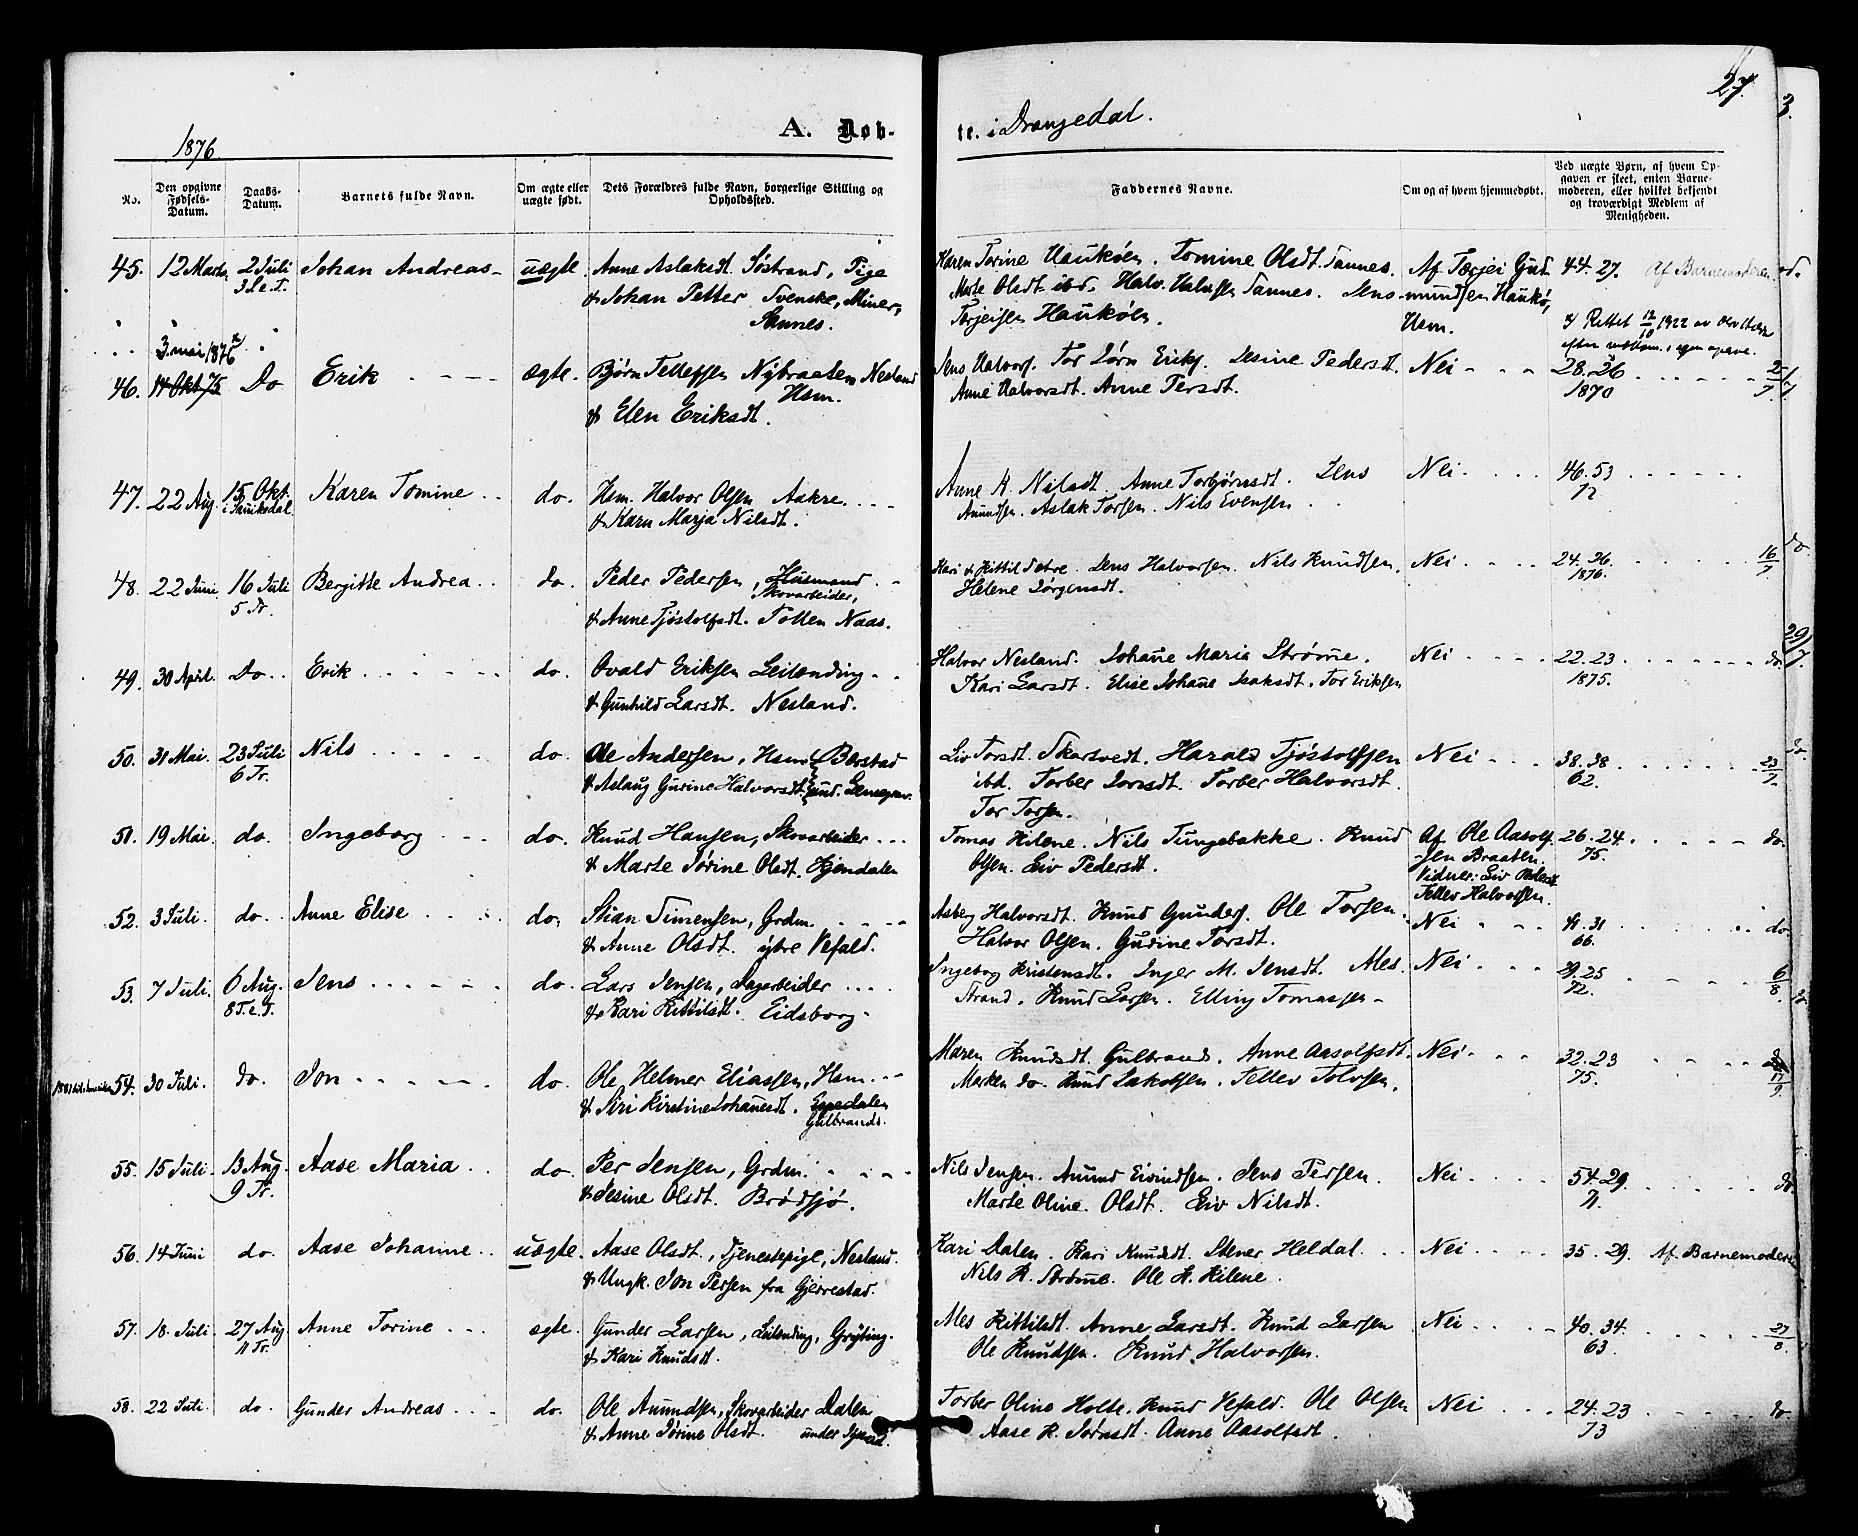 27.
3.
1876.
A. Døb-
te. i Drangedal.
No.
Den opgivne Fødsels-Datum.
Daabs-Datum.
Barnets fulde Navn.
Om ægte eller uægte født.
Dets Forældres fulde Navn, borgerlige Stilling og Opholdssted.
Faddernes Navne.
Om og af hvem hjemmedøbt.
Ved uægte Børn, af hvem Opgaven er skeet, enten Barnemoderen, eller hvilket bekjendt og troværdigt Medlem af Menigheden.
45. 12 Marts 2 Juli Johan Andreas - uægte. Anne Aslaksdt. Søstrand, Pige
3 S. e. T. & Johan Petter Svenske, Miner,
Sannes.
Karen Torine Haukøen. Tomine Olsdt. Sannes. Af Tærjei Gud- 44. 27. Af Barnemoderen
Marte Olsdt. ibd. Halv. Halvorsen Sannes. Jens mundsen Haukø,
Torjeisen Haukøen. Hsm.
3 mai 1876
x) Rettet 12/10 1922 av
46. 14 Okt 75 Do Erik - - - ægte. Bjørn Tellefsen Nybraaten Nesland
Hsm.
& Elen Eriksdt.
Jens Halvors. Tor Jørn Eriks. Jesine Pedersdt. Nei - - - 28. 26
Anne Halvorsdt. Anne Tersdt. 1870
47. 22 Aug. 15 Okt. Karen Tomine . . do. Hsm. Halvor Olsen Aakre. . . .
& Karen Marja Nilsdt.
Anne K. Nilsdt. Anne Torbjørnsdt. Jens Nei . . . 46. 53
Aanundsen. Aslak Torsen. Nils Evensen. 72
48. 22 Juni 16 Juli Bergitte Andrea . . do. Peder Pedersen, Husmand
5 Tr. Skovarbeider,
& Anne Tjøstolfsdt. Tollen Naas.
Kari & Kittil Sætre. Jens Halvorsen. Nils Knudsen. Nei . . . 24. 36 16/7
Helene Jørgensdt. 1876.
49. 30 April. Do. . Erik . . . . do. Ovald Eriksen Leilending . .
& Gunhild Larsdt. Nesland.
Halvor Nesland. Johane Maria Strømme. Nei . . . 22. 23 do.
Kari Larsdt. Elise Johane Isaksdt. Tor Eriksen 1875.
50. 31 Mai. 23 Juli Nils . . . . do. Ole Andersen, Hsm. Borstad
6 Tr. & Aslaug Gurine Halvorsdt. und.
Liv Torsdt. Skarsvedt. Harald Tjøstolfsen Nei - . . 38. 38 23/7
ibd. Torber Larsdt. Torber Halvorsdt. 62.
Tor Torsen.
51. 19 Mai. do. Ingeborg . . do. Knud Hansen, Skovarbeider . . .
& Marte Tørine Olsdt. Gjendalen
Tomas Kilene. Nils Tungebakke. Knud Af Ole Aasolf- 26. 24. do.
Olsen. Liv Pedersdt. sen Braaten. 75.
Vidner: Liv Pedersdt
Tellev Halvorsen.
52. 3 Juli. do. Anne Elise . . . do. Stian Simensen, Grdm. . . .
& Anne Olsdt. ytre Vefald.
Asberg Halvorsdt. Knud Gunders. Ole Torsen. Nei . . . 41. 31 do.
Halvor Olsen. Gurine Torsdt. 66.
53. 7 Juli. 6 Aug. Jens . . . . do. Lars Jensen, Dagarbeider . . .
8 S. e. T. & Kari Kittilsdt. Eidsborg.
Ingeborg Kristensdt. Inger M. Jensdt. Mes. Nei . . . 29. 25 6/8
Strand. Knud Larsen. Elling Tomassen - 72.
54. 30 Juli. do. Jon . . . . do. Ole Helmer Eliassen, Hsm. . .
& Siri Kirstine Johannesdt. Espedalen
Gulbrands.
Maren Knudsdt. Gulbrands. Anne Aasolfsdt. Nei . . . 32. 23
Marken do. Knud Jakobsen. Tellev Tolvsen. 75. 17/9
55. 15 Juli. 13 Aug. Aase Maria . . do. Per Jensen, Grdm. . . .
9 Tr. & Jesine Olsdt. Brødsjø.
Nils Jensen. Aanund Eivindsen. Jens Persen. Nei . . . 54. 29 do.
Marte Oline Olsdt. Liv Nilsdt. 71.
56. 14 Juni do. Aase Johanne . . uægte. Aase Olsdt., Tjenestepige, Nesland.
& Ungk. Jon Persen fra Gjerrestad.
Kari Dalen. Kari Knudsdt. Stener Heldal. . . Nei . . . 35. 29. Af Barnemoderen
Nils K. Strømme. Ole K. Kilene.
57. 18. Juli. 27 Aug Anne Torine . . . ægte. Gunder Larsen, Leilending, Grøting.
11 Tr. & Kari Knudsdt.
Mes Kittilsdt. Anne Larsdt. Knud Larsen Nei . . . 40. 34. 27/8
Ole Knudsen. Knud Halvorsen. 63.
58. 22 Juli. do. Gunder Andreas . . do. Ole Aanundsen, Skovarbeider Dalen
& Anne Tørine Olsdt. under
Torber Oline Holte. Knud Vefald. Ole Olsen Nei . . . 24. 23 do.
Aase K. Jørnsdt. Anne Aasolfsdt. 73